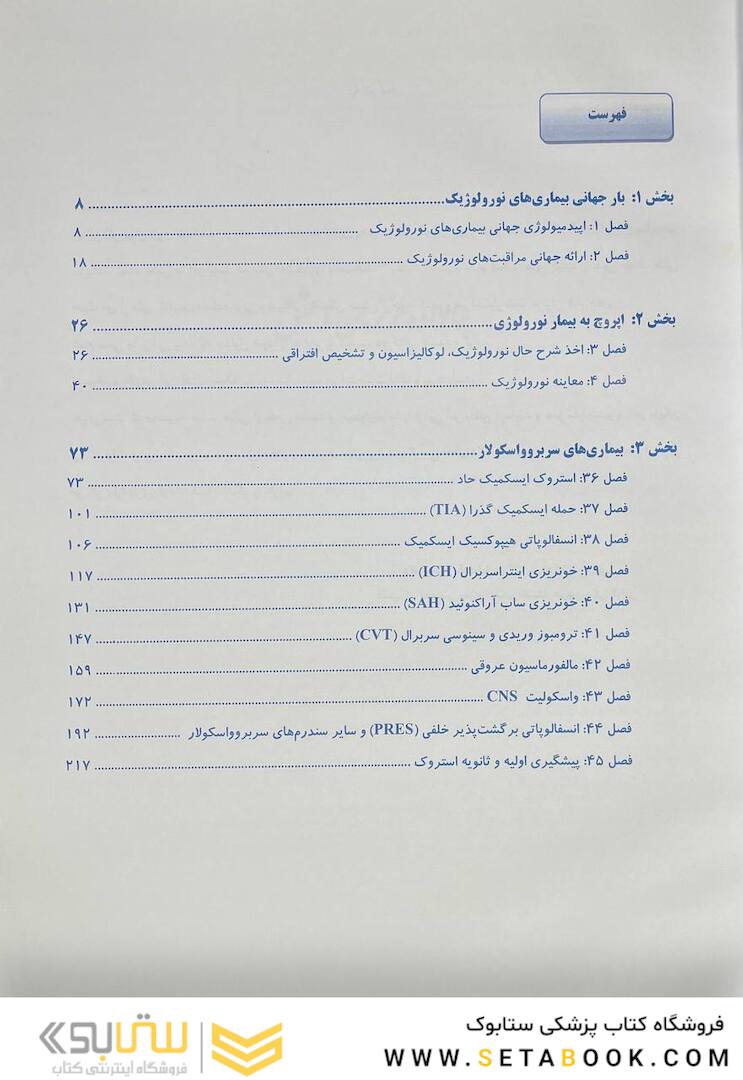 فهرست
بخش ۱: بار جهانی بیماری‌های نورولوژیک ۸
فصل ۱: اپیدمیولوژی جهانی بیماری‌های نورولوژیک ۸
فصل ۲: ارائه جهانی مراقبت‌های نورولوژیک ۱۸
بخش ۲: اپروچ به بیمار نورولوژی ۲۶
فصل ۳: اخذ شرح حال نورولوژیک، لوکالیزاسیون و تشخیص افتراقی ۲۶
فصل ۴: معاینه نورولوژیک ۴۰
بخش ۳: بیماری‌های سربروواسکولار ۷۳
فصل ۳۶: استروک ایسکمیک حاد ۷۳
فصل ۳۷: حمله ایسکمیک گذرا (TIA) ۱۰۱
فصل ۳۸: انسفالوپاتی هیپوکسیک ایسکمیک ۱۰۶
فصل ۳۹: خونریزی اینتراسربرال (ICH) ۱۱۷
فصل ۴۰: خونریزی ساب آراکنوئید (SAH) ۱۳۱
فصل ۴۱: ترومبوز وریدی و سینوسی سربرال (CVT) ۱۴۷
فصل ۴۲: مالفورماسیون عروقی ۱۵۹
فصل ۴۳: واسکولیت CNS ۱۷۲
فصل ۴۴: انسفالوپاتی برگشت‌پذیر خلفی (PRES) و سایر سندرم‌های سربروواسکولار ۱۹۲
فصل ۴۵: پیشگیری اولیه و ثانویه استروک ۲۱۷
فروشگاه کتاب پزشکی ستابوک
WWW.SETABOOK.COM
ستابوک
فروشگاه اینترنتی کتاب